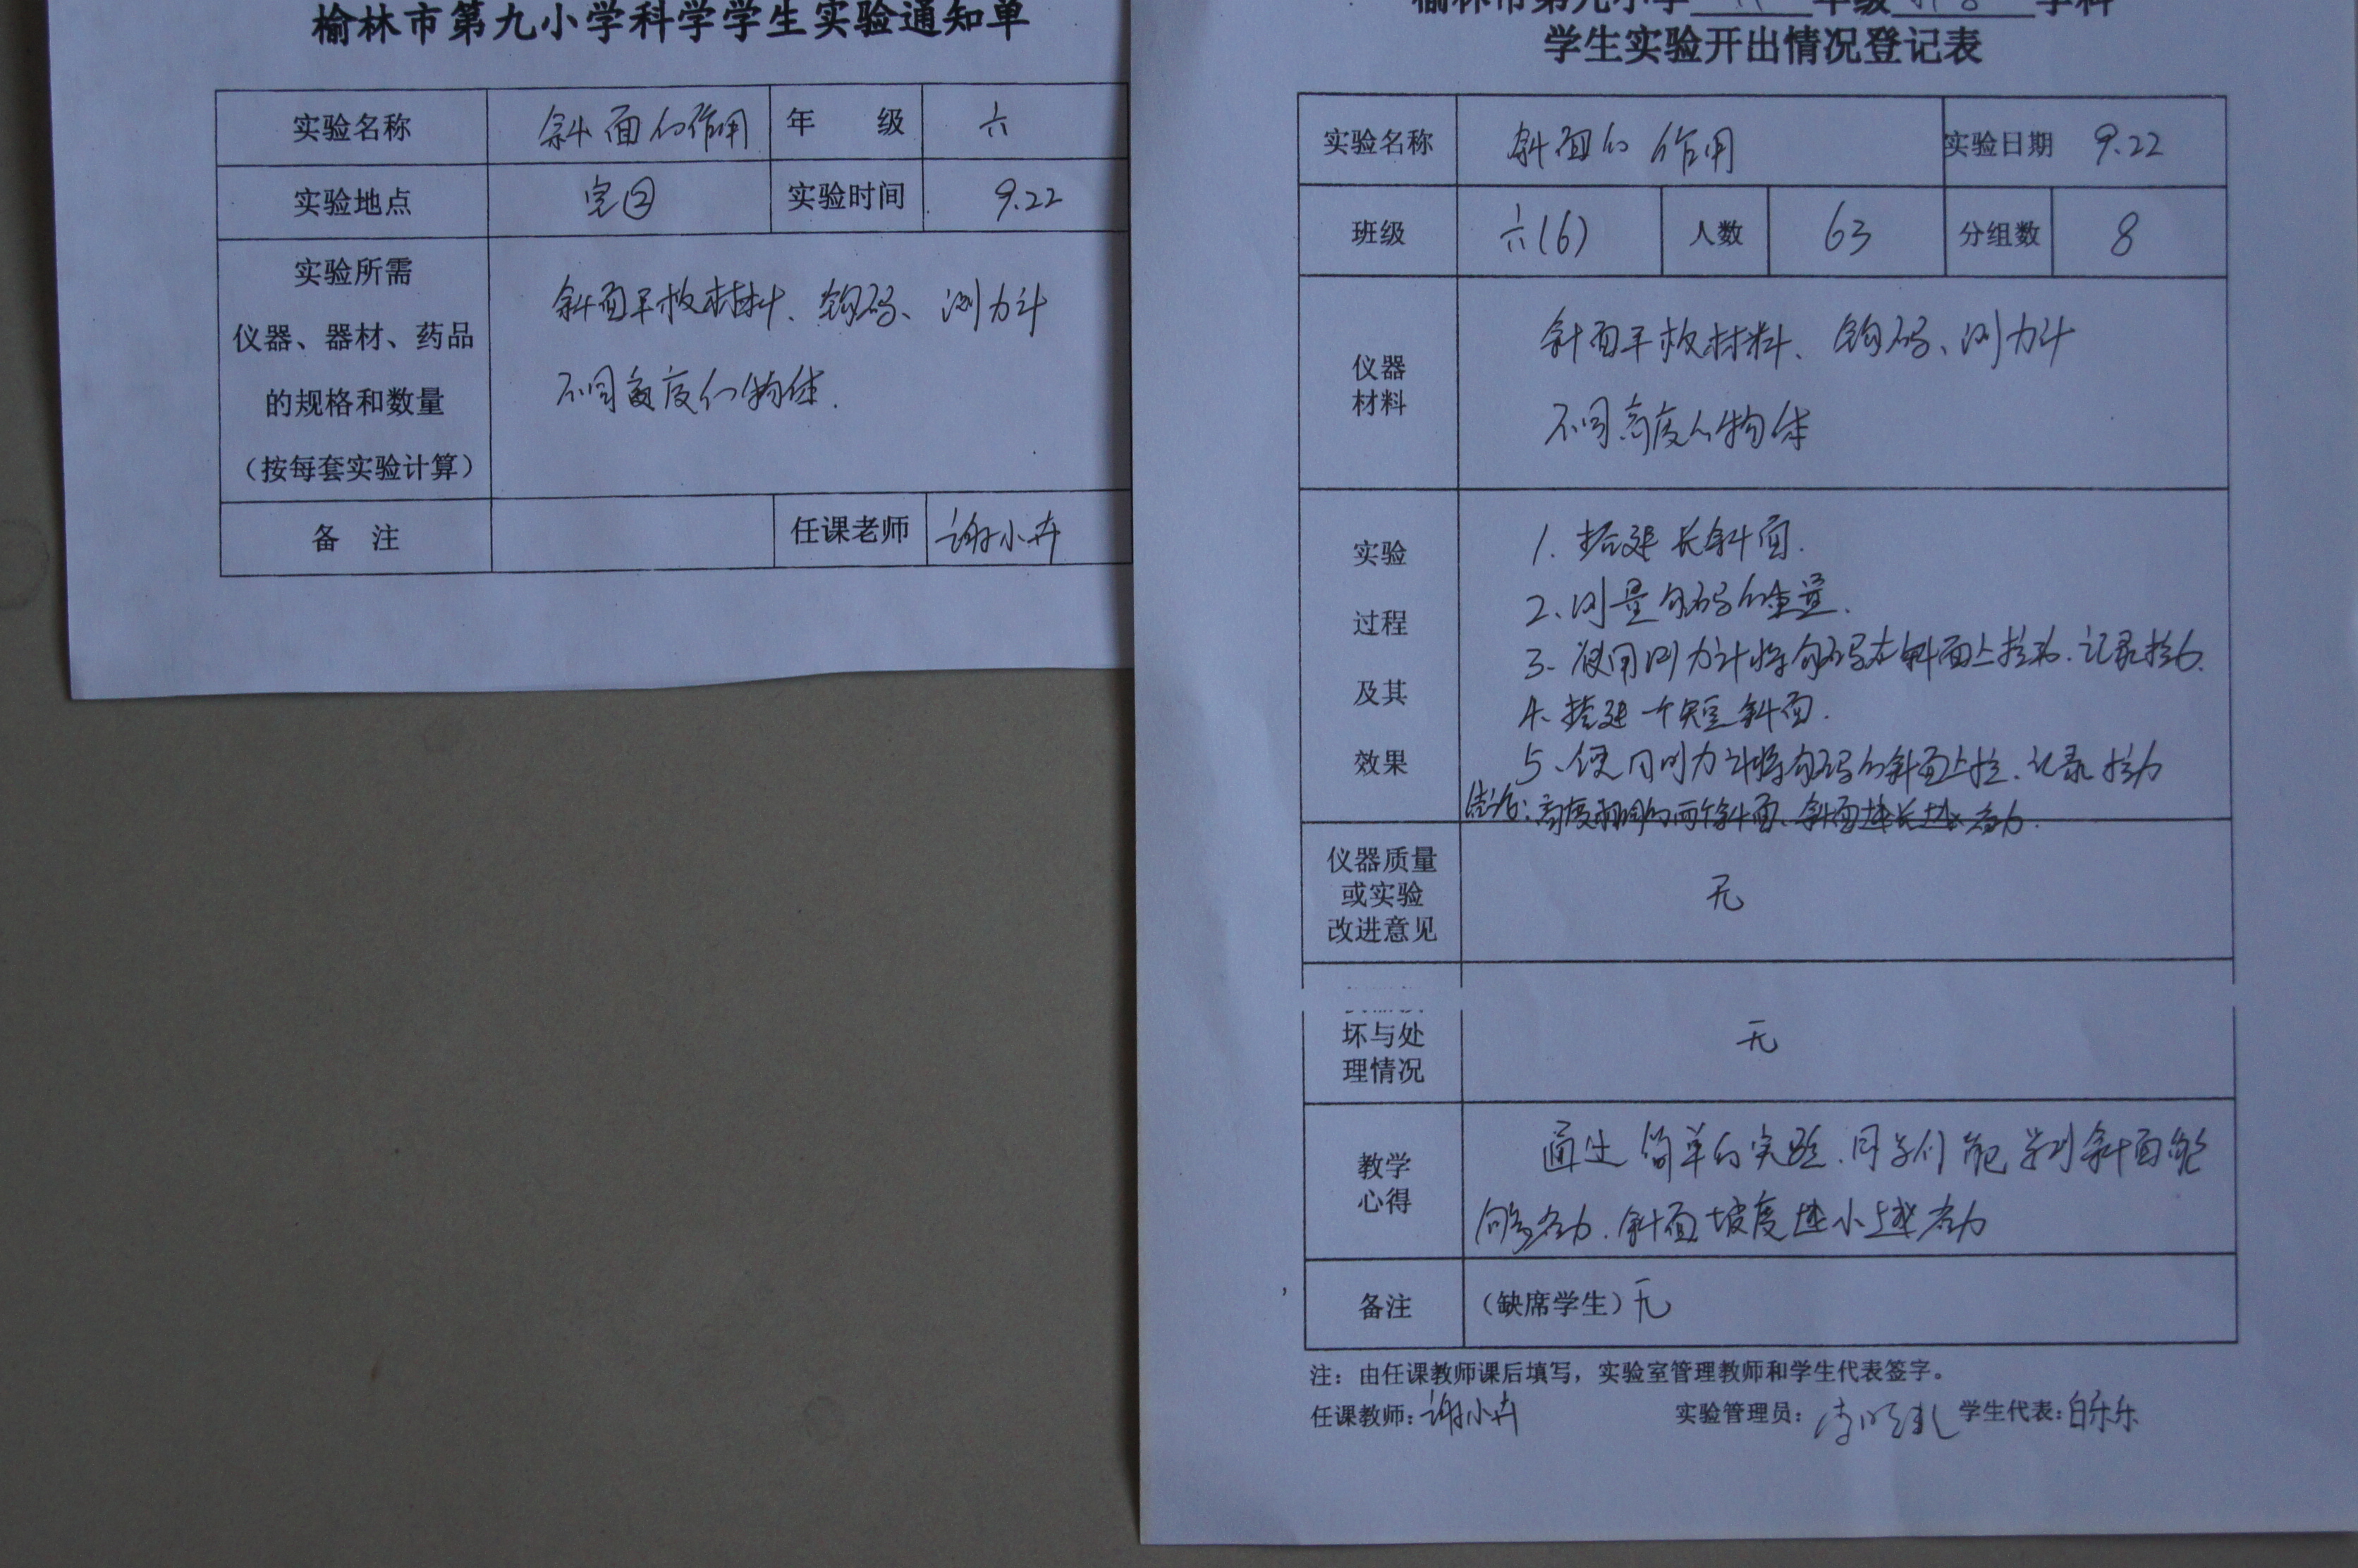 榆林市第九小学科学学生实验通知单
实验名称 斜面的作用 年 级 六
实验地点 室② 实验时间 9.22
实验所需
仪器、器材、药品
的规格和数量
（按每套实验计算）
斜面平板材料、钩码、测力计
不同高度的物体.
备 注 任课老师 谢小卉
榆林市第九小学 年级 学科
学生实验开出情况登记表
实验名称 斜面的作用 实验日期 9.22
班级 六(6) 人数 63 分组数 8
仪器
材料
斜面平板材料、钩码、测力计
不同高度的物体
实验
过程
及其
效果
1. 搭建长斜面.
2、测量钩码的重量.
3、使用测力计将钩码在斜面上拉动.记录拉力.
4、搭建一个短斜面.
5、使用测力计将钩码的斜面上拉、记录拉力
结论:高度相同的两个斜面、斜面越长越省力.
仪器质量
或实验
改进意见
无
坏与处
理情况
无
教学
心得
通过简单的实验.同学们能学到斜面能
够省力.斜面坡度越小越省力
备注 （缺席学生）无
注：由任课教师课后填写，实验室管理教师和学生代表签字。
任课教师：谢小卉 实验管理员： 学生代表：白乐乐